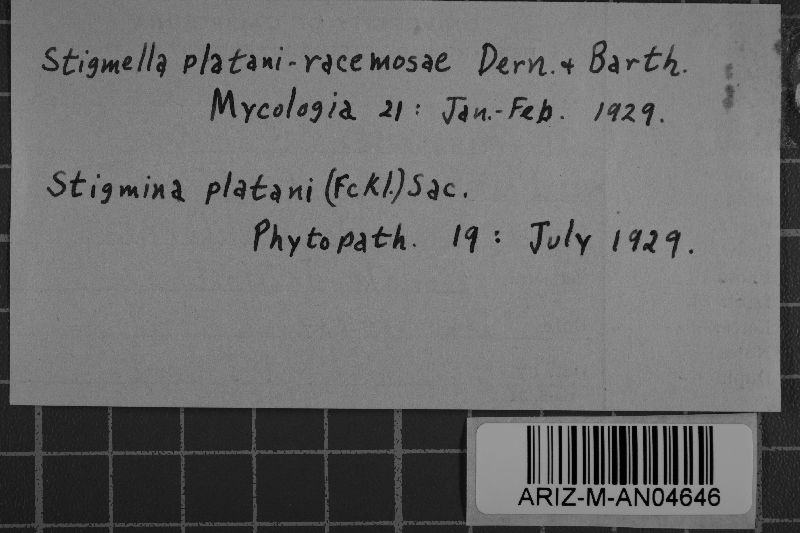 Stigmella platani-racemosae Dern. + Barth.
Mycologia 21: Jan.-Feb. 1929.
Stigmina platani (Fckl.) Sac.
Phytopath. 19: July 1929.
ARIZ-M-AN04646